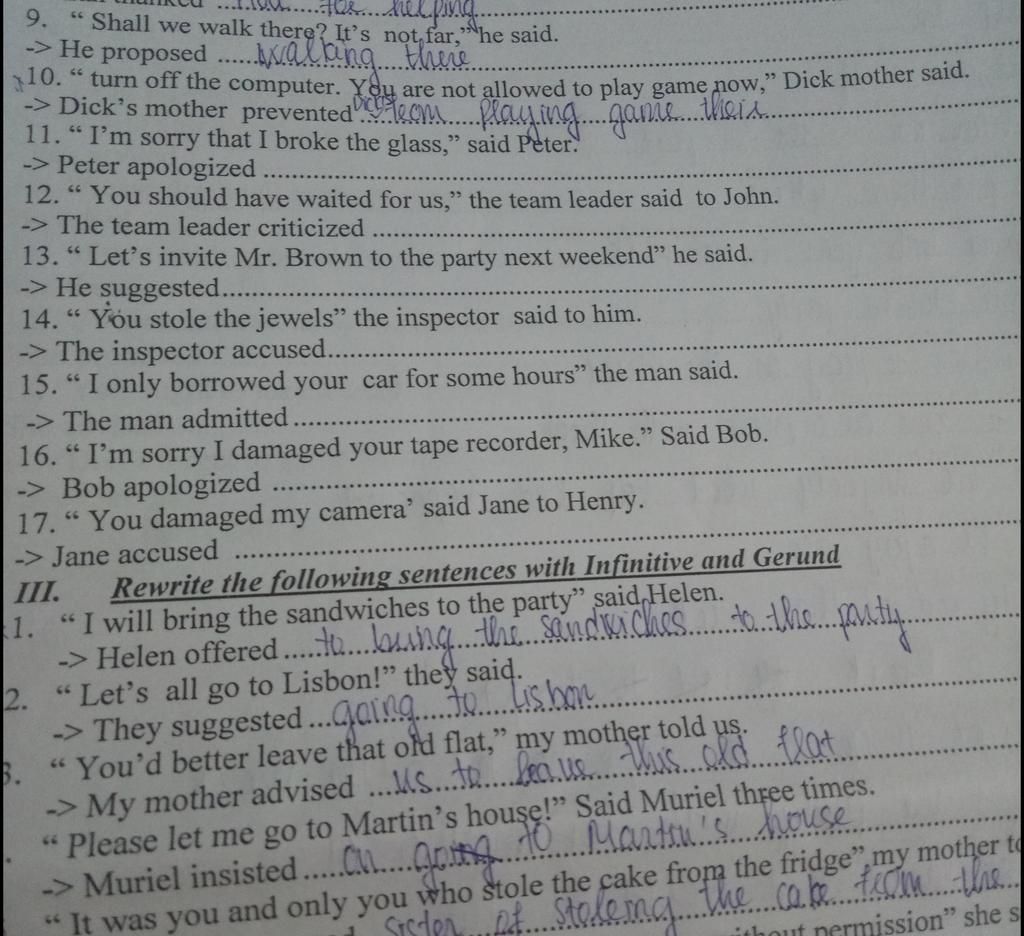 the helping
9. “ Shall we walk there? It's not far,” he said.
-> He proposed ......walking there
10. “ turn off the computer. You are not allowed to play game now,” Dick mother said.
-> Dick's mother prevented playing game
11. “ I'm sorry that I broke the glass,” said Peter.
-> Peter apologized ..........
12. “ You should have waited for us,” the team leader said to John.
-> The team leader criticized ..........
13. “ Let's invite Mr. Brown to the party next weekend” he said.
-> He suggested..........
14. “ You stole the jewels” the inspector said to him.
-> The inspector accused..........
15. “ I only borrowed your car for some hours” the man said.
-> The man admitted ..........
16. “ I'm sorry I damaged your tape recorder, Mike.” Said Bob.
-> Bob apologized ..........
17. “ You damaged my camera’ said Jane to Henry.
-> Jane accused ..........
III. Rewrite the following sentences with Infinitive and Gerund
1. “ I will bring the sandwiches to the party” said Helen.
-> Helen offered .....to bring the sandwiches to the party
2. “ Let's all go to Lisbon!” they said.
-> They suggested ...going to Lisbon
3. “ You'd better leave that old flat,” my mother told us.
-> My mother advised ...us to leave this old flat
“ Please let me go to Martin's house!” Said Muriel three times.
-> Muriel insisted .....on going to Martin's house
“ It was you and only you who stole the cake from the fridge” my mother to
sister of the cake from the
permission” she s